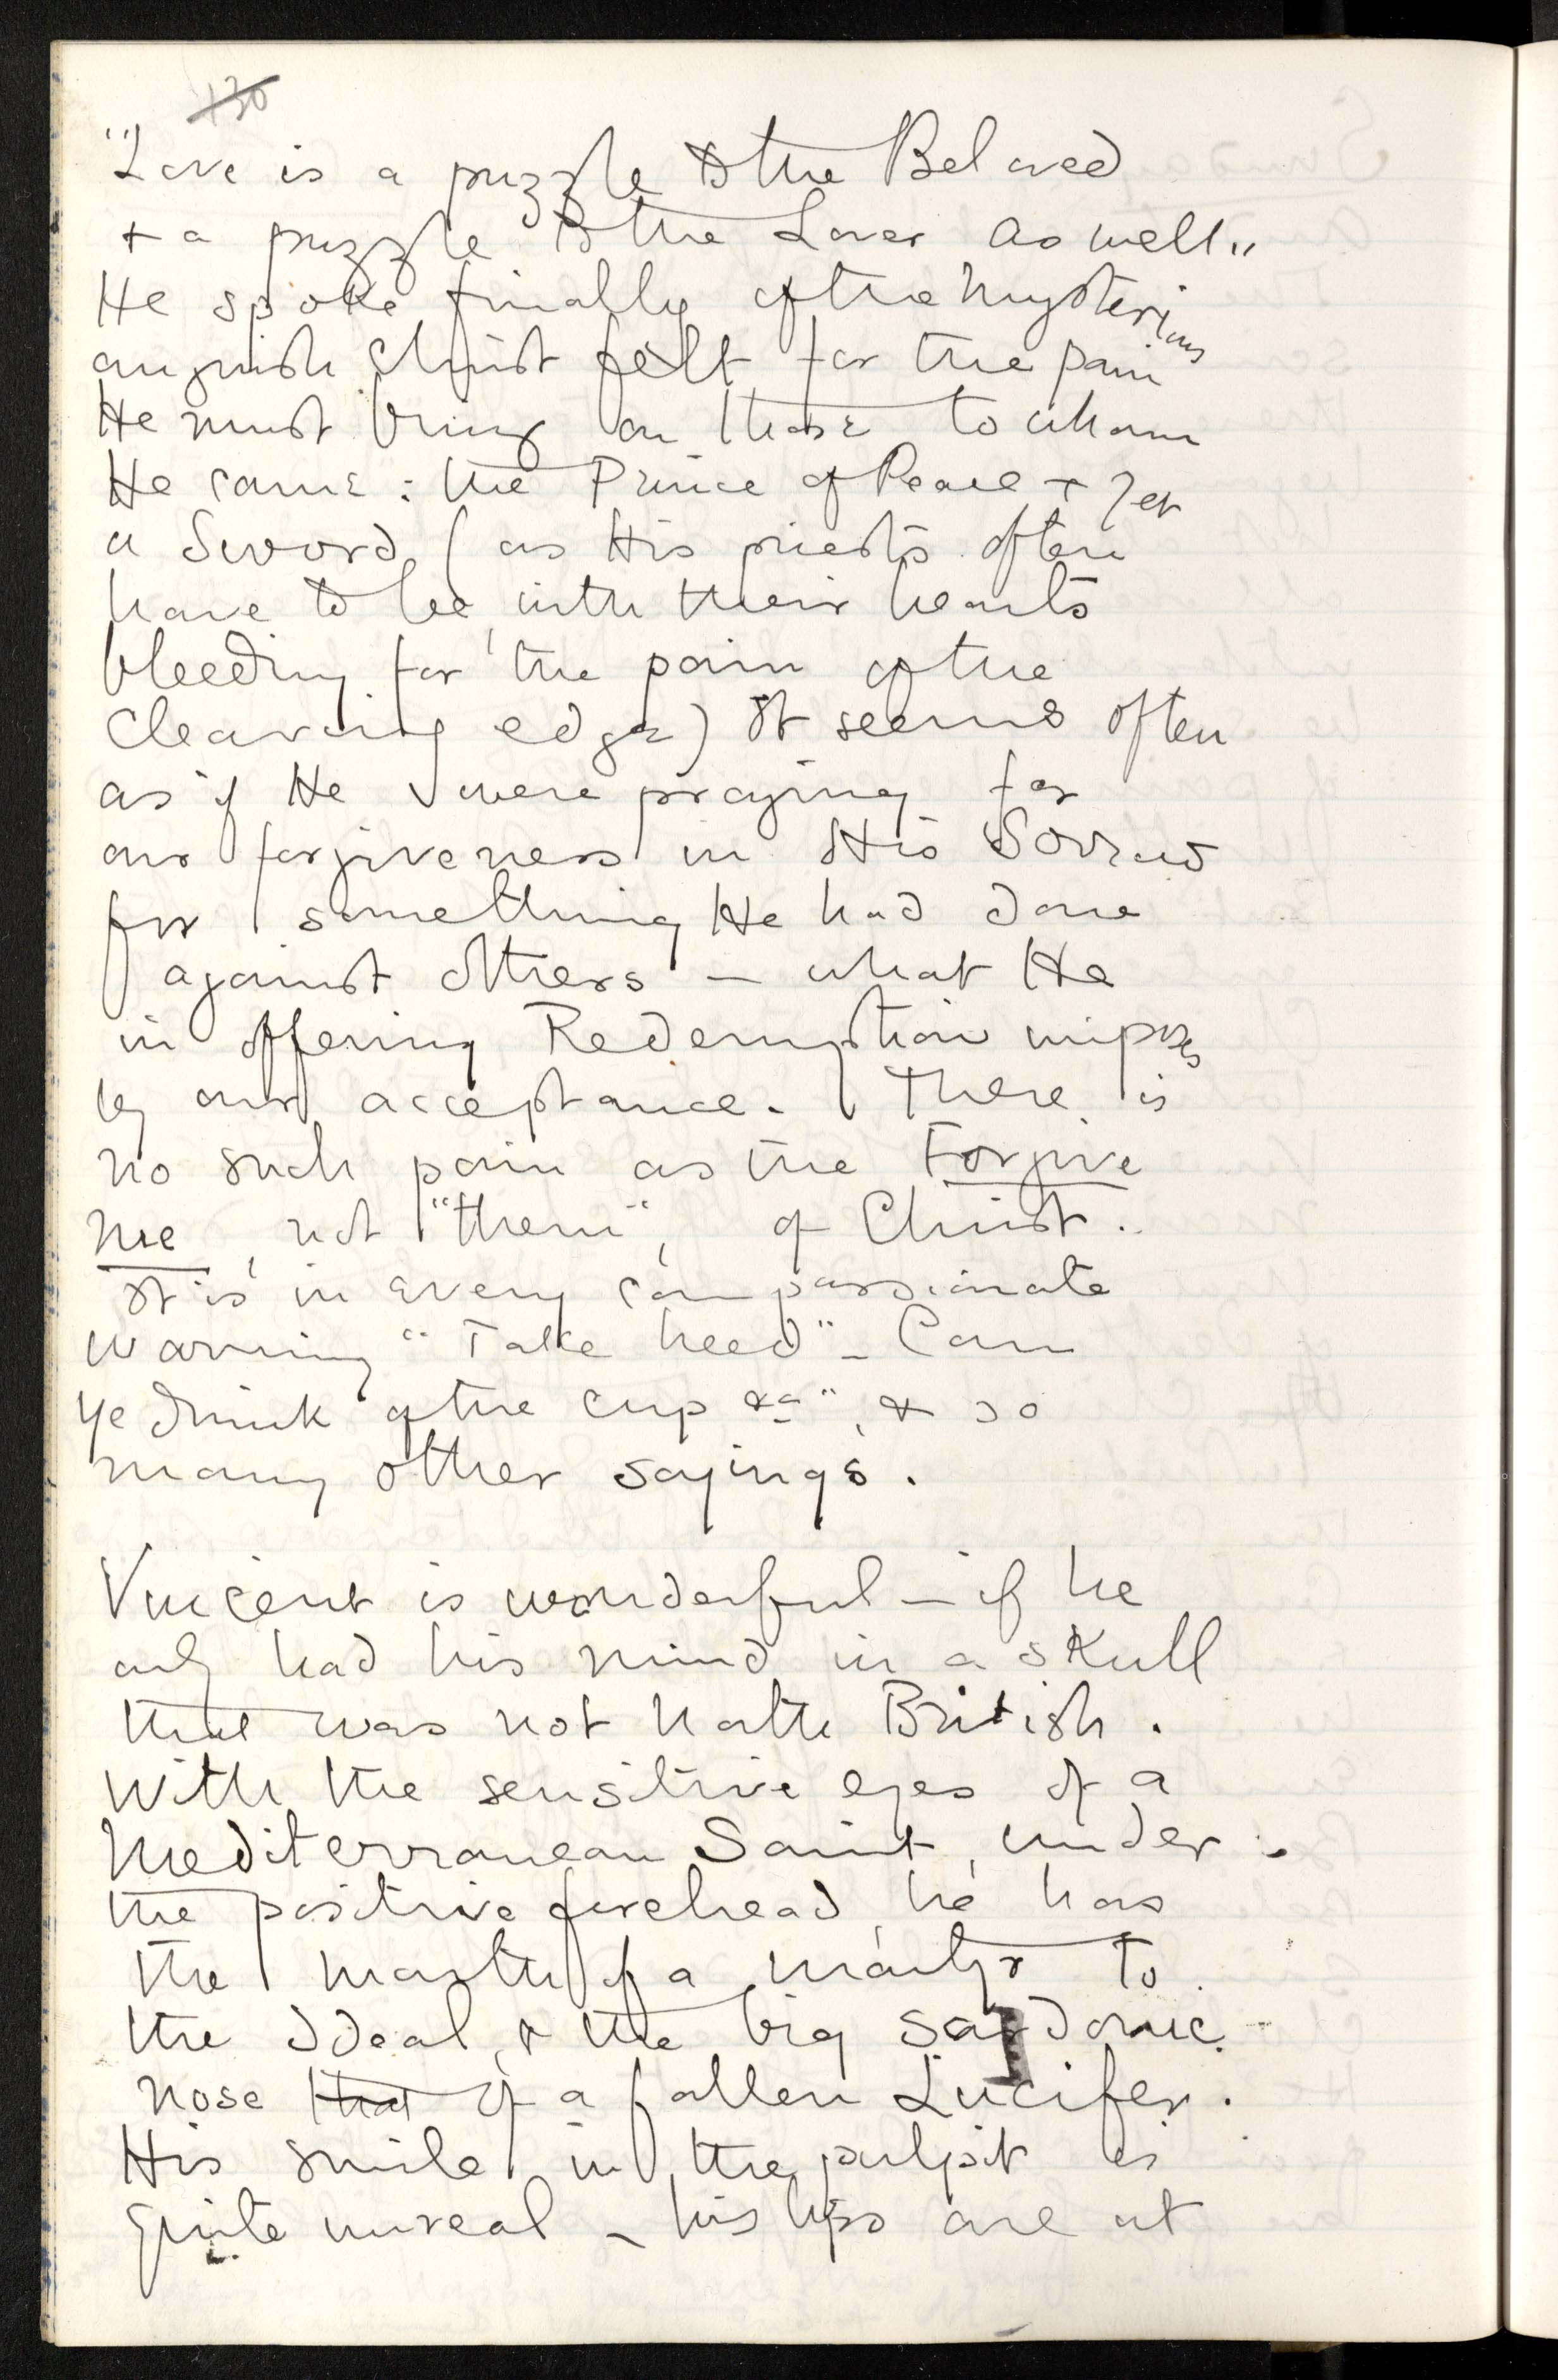 130
"Love is a puzzle to the Beloved
+ a puzzle to the Lover as well"
He spoke finally of the mysterious
anguish Christ felt for the pain
He must bring on those to whom
He came: the Prince of Peace + yet
a Sword (as His priests often
have to be, with their hearts
bleeding for the pain of the
cleaving edge) It seems often
as if He were praying for
our forgiveness in His Sorrow
for something He had done
against others – what He
in offering Redemption imposes
by our acceptance. There is
no such pain as the Forgive
me, not "them", of Christ.
It is in every compassionate
warning "Take heed" – Can
ye drink of the cup &c", & so
many other sayings.
Vincent is wonderful – if he
only had his mind in a skull
that was not North British.
With the sensitive eyes of a
Mediterranean Saint, under
the positive forehead, he has
the mouth of a martyr to
the Ideal, & the big sardonic
nose that of a fallen Lucifer.
His smile in the pulpit is
quite unreal – his lips are at